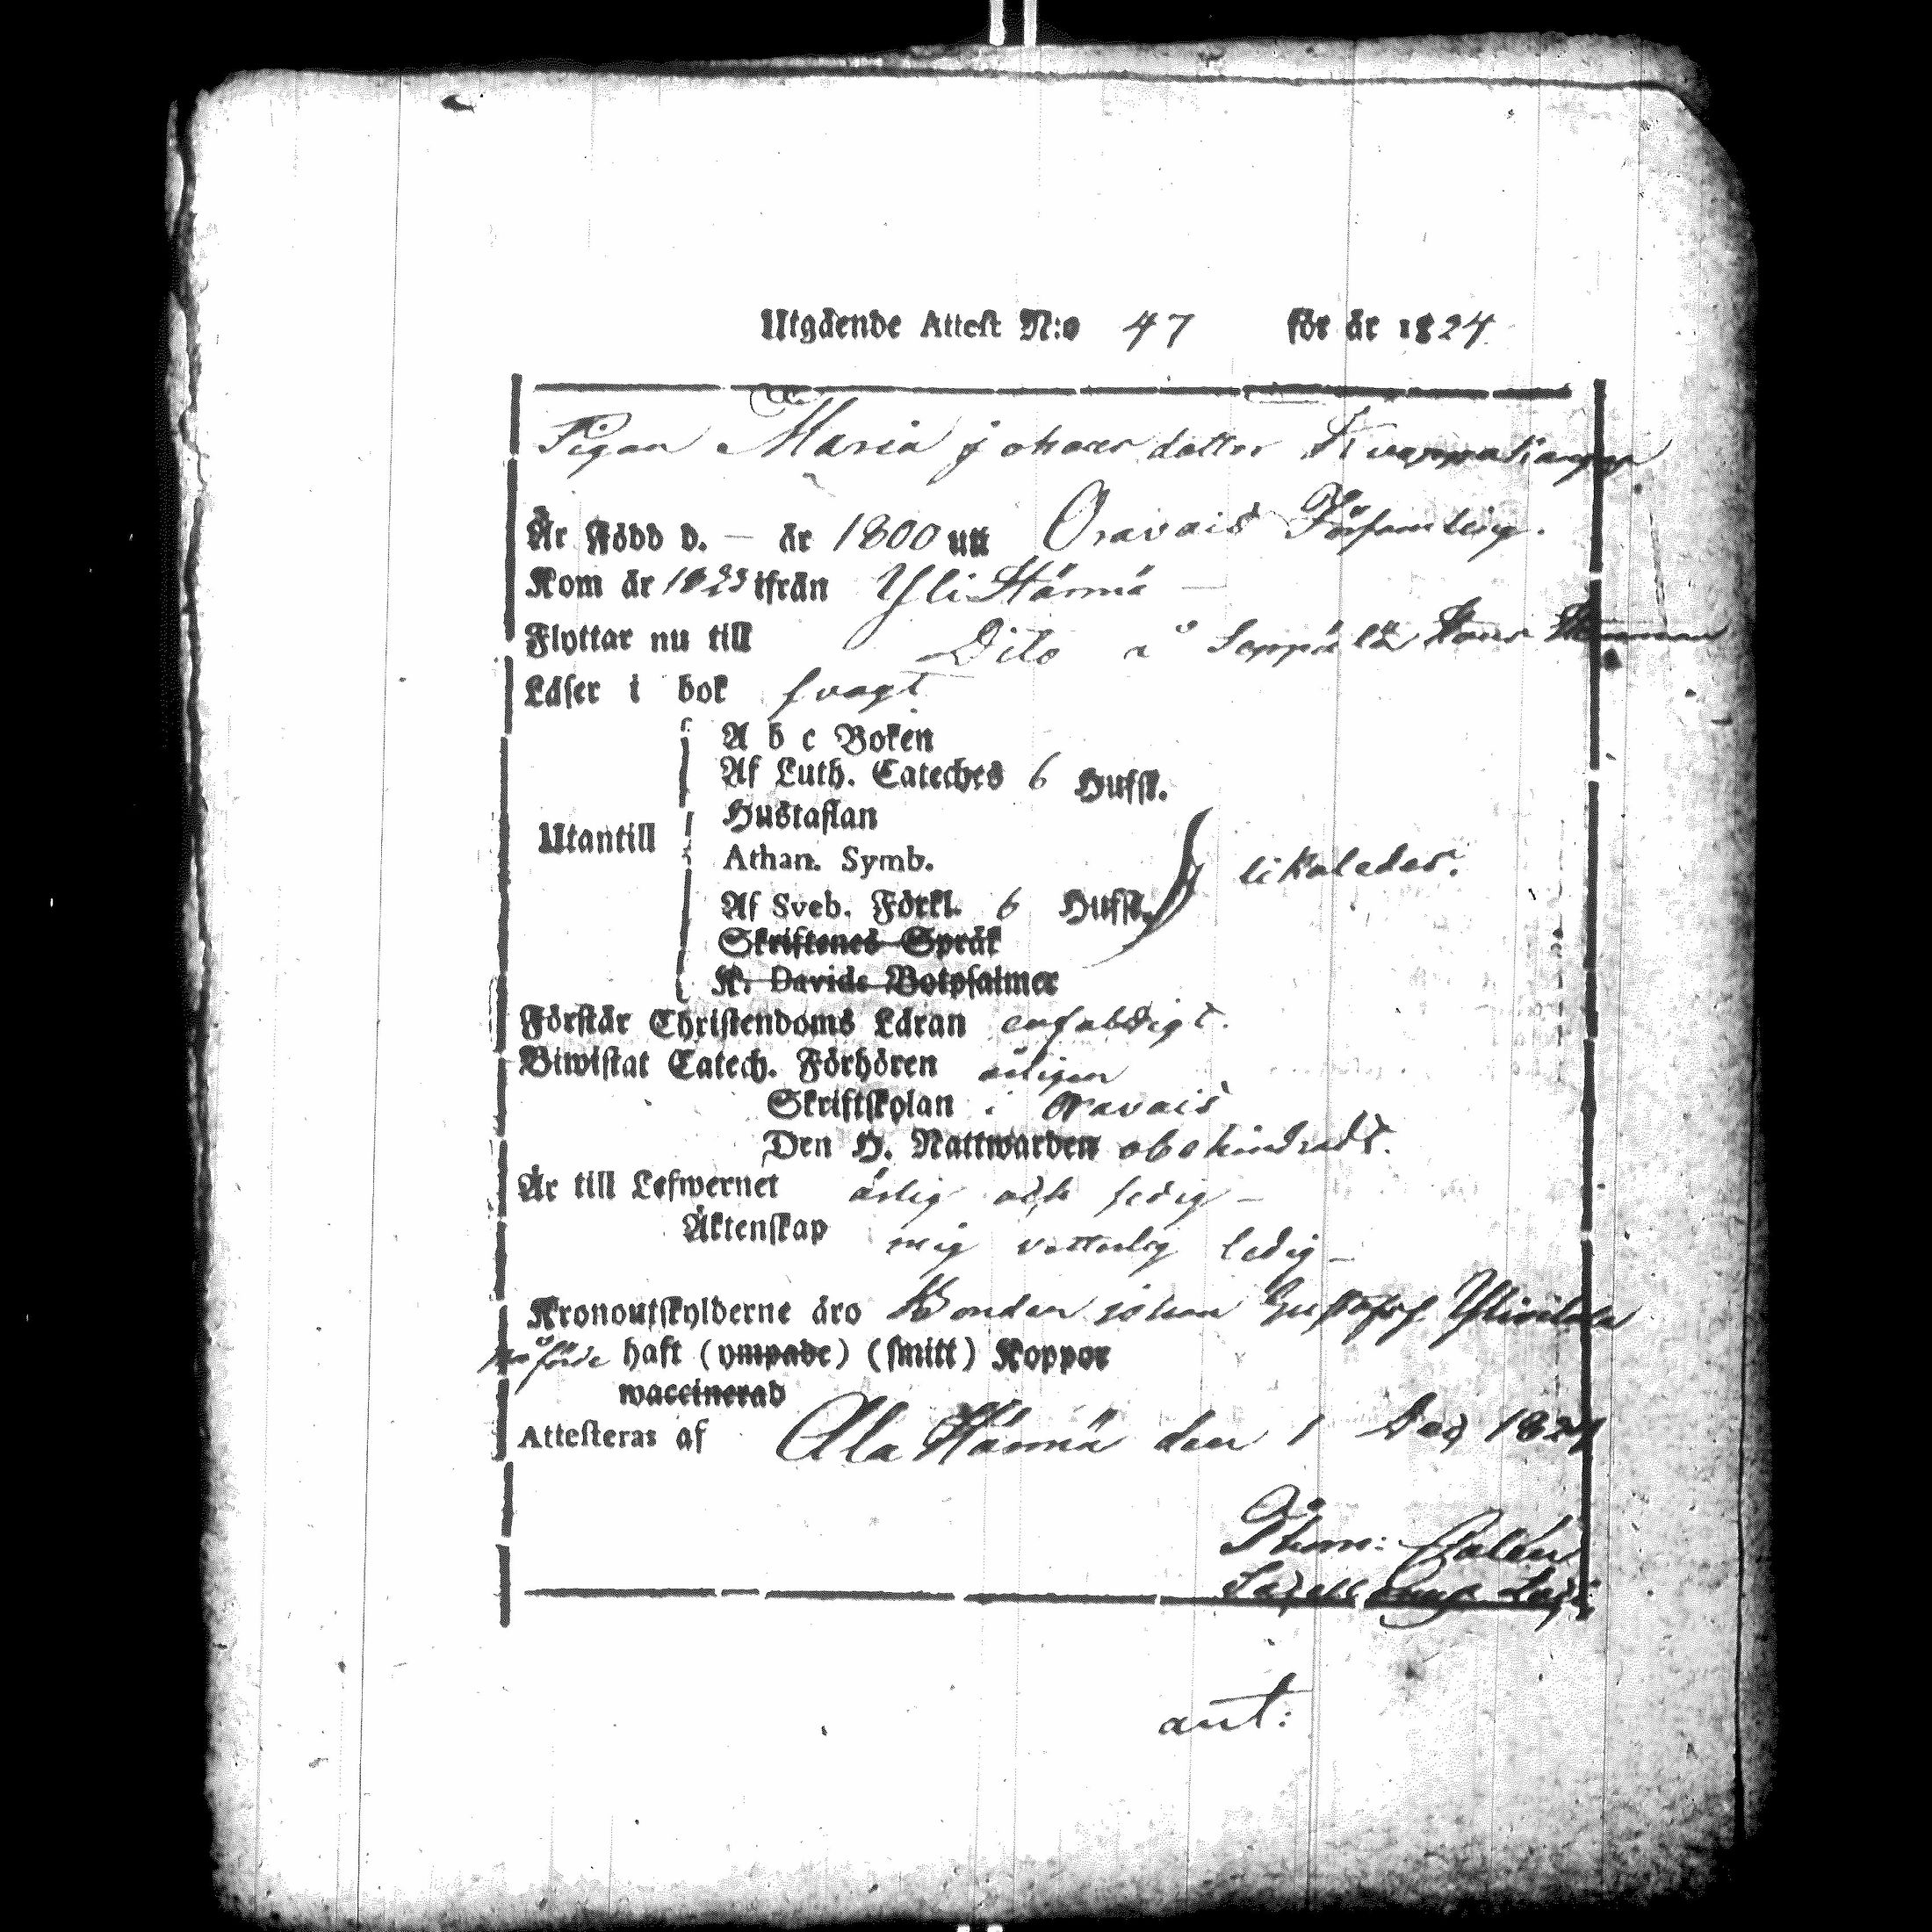 Utgående Attest N:o 47 för år 1824.
Pigan Maria johans dotter
Är Född d. — år 1800 uti Oravais Församling.
Kom år 1823 ifrån Yli Härmä —
Flyttar nu till Dito å Seppälä
Läser i bok svagt
A b c Boken
Af Luth. Cateches 6 Hufst.
Hustaflan
Utantill
Athan. Symb. likaledes.
Af Sveb. Förkl. 6 Hufst.
Skriftenes Språk
K. Davids Botpsalmer
Förstår Christendoms Läran enfaldigt.
Biwistat Catech. Förhören årligen
Skriftskolan i Oravais
Den H. Nattwarden obehindradt.
Är till Lefwernet ärlig och sedig —
Äktenskap mig vetterlig ledig —
Kronoutskylderne äro Bonden johan Gustafss.
påförde haft (ympade) (smitt) Koppor
waccinerad
Attesteras af Ala Härmä den 1 Dec 1824
ant: